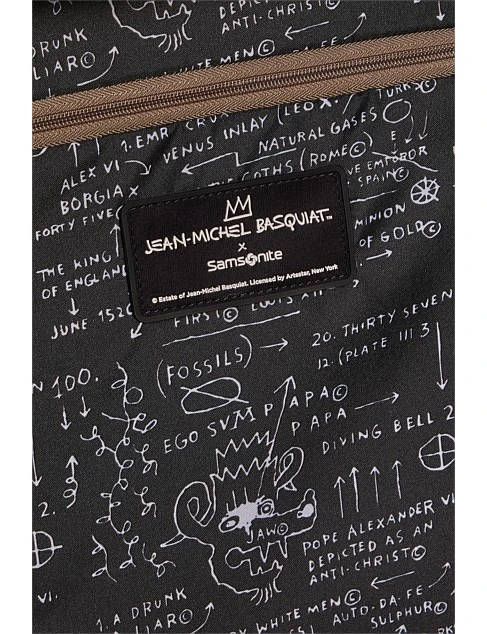 A DRUNK
LIAR©
DEPICTED AS AN
ANTI-CHRIST©
WHITE MEN©
1. EMR
VENUS INLAY (LEO X.
TURKS©
ALEX VI
NATURAL GASES
BORGIA X
GOTHS (ROME©
EMPEROR
SPAIN©
FORTY FIVE
MINION
OF GOLD©
THE KING
OF ENGLAND
JEAN-MICHEL BASQUIAT™
x
Samsonite
© Estate of Jean-Michel Basquiat. Licensed by Artestar, New York
JUNE 152
FIRST© LOUIS XII
(FOSSILS)
20. THIRTY SEVEN
12. (PLATE III 3
100.
PAPA©
PAPA
EGO SVM P
DIVING BELL 2
2.
JAW©
POPE ALEXANDER VI.
DEPICTED AS AN
ANTI-CHRIST©
1. A DRUNK
LIAR©
WHITE MEN©
AUTO-DA-FE
SULPHUR©